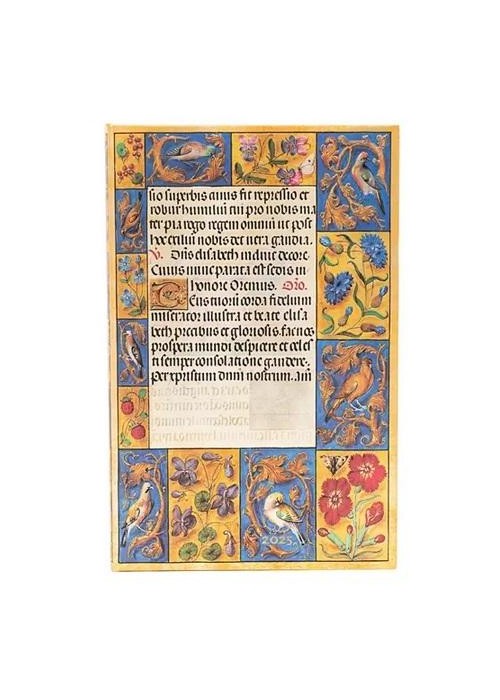 sio superbis anns fit repressio et
robur humiliū tui pro nobis ma
ter pia rogo regem omniū ut post
hoc exiliū nobis det uera gaudia.
V. Dn̄s elisabeth induit decore.
Cuius nunc parata est sedes in
honore. Oremus. Oro.
Eus tuorū corda fidelium
miserator illustra et beate elisa
beth precibus et gloriosis. fac nos
prospera mundi despicere et celes
ti semper consolatione gaudere.
Per xpristum dnm nostrum. Am
2025